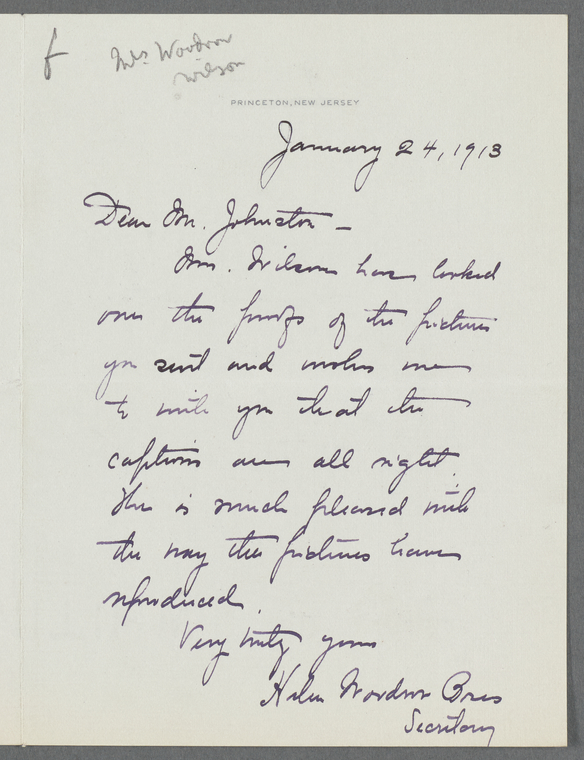 f
Mrs Woodrow
Wilson
PRINCETON, NEW JERSEY
January 24, 1913
Dear Mr. Johnston –
Mrs. Wilson has looked
over the proofs of the pictures
you sent and wishes me
to write you that the
captions are all right.
She is much pleased with
the way the pictures have
reproduced.
Very truly yours
Helen Woodrow Bones
Secretary